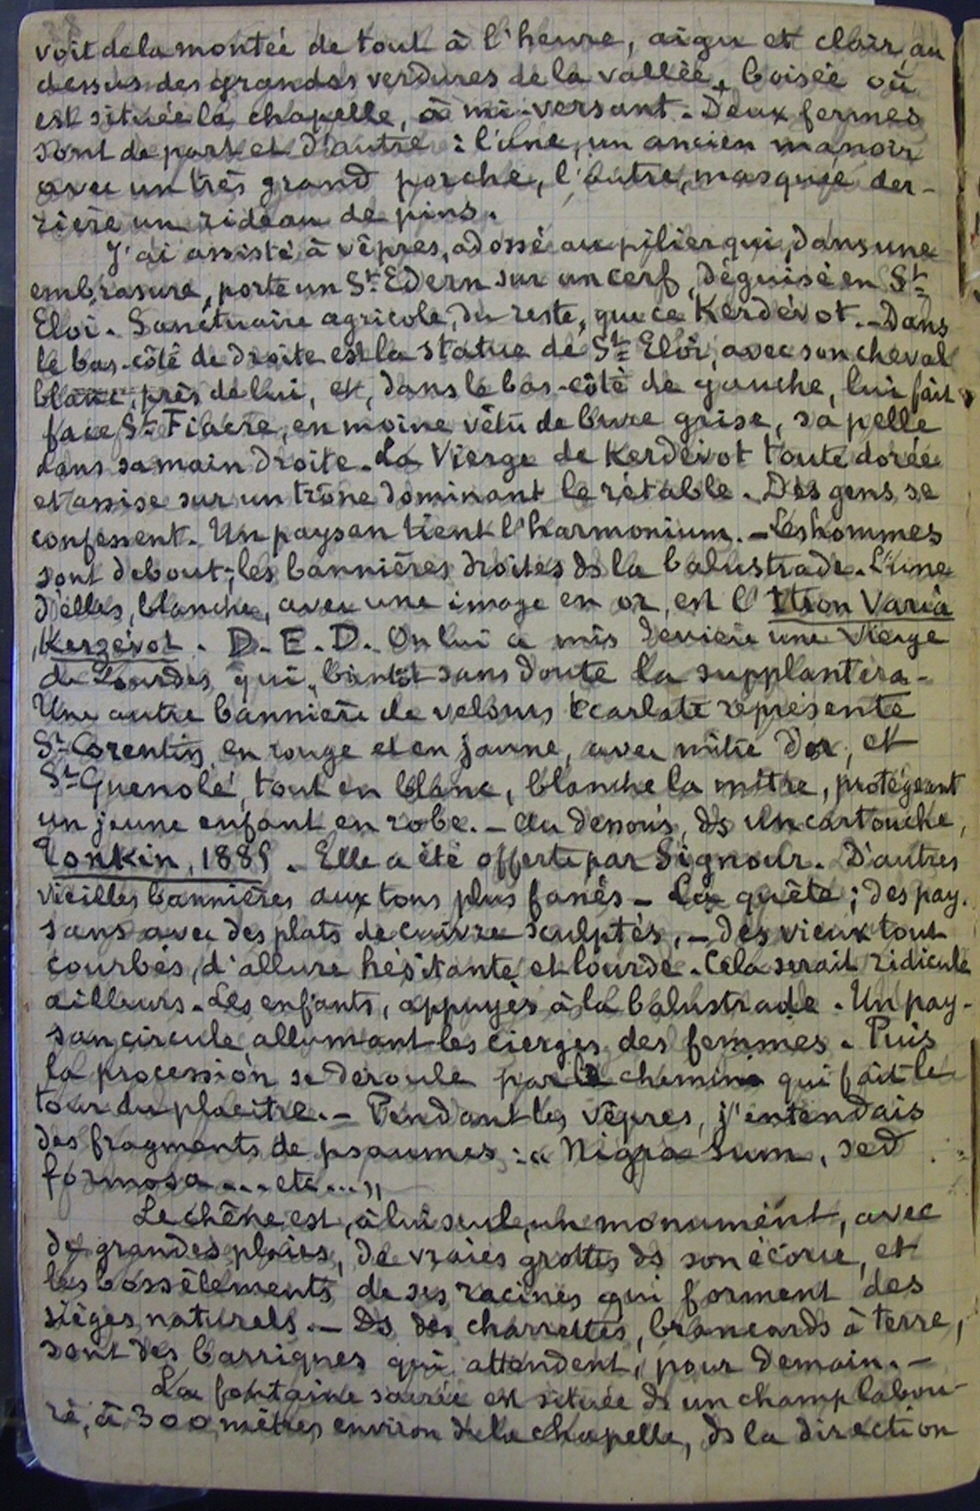 voit de la montée de tout à l'heure, aigu et clair, au
dessus des grandes verdures de la vallée, boisée où
est située la chapelle, à mi-versant. Deux fermes
sont de part et d'autre : l'une, un ancien manoir
avec un très grand porche, l'autre, masquée der-
rière un rideau de pins.
J'ai assisté à vêpres, adossé au pilier qui, dans une
embrasure, porte un St. Edern sur un cerf, déguisé en St.
Eloi. Sanctuaire agricole, du reste, que ce Kerdévot. - Dans
le bas-côté de droite est la statue de St. Eloi, avec son cheval
blanc, près de lui, et, dans le bas-côté de gauche, lui fait
face St. Fiacre, en moine vêtu de bure grise, sa pelle
dans sa main droite. La Vierge de Kerdévot toute dorée
est assise sur un trône dominant le rétable. Des gens se
confessent. Un paysan tient l'harmonium. - Les hommes
sont debout ; les bannières droites ds la balustrade. L'une
d'elles, blanche, avec une image en or, est l'Itron Varia
Kerzévot. D. E. D. On lui a mis derrière une Vierge
de Lourdes qui, bientôt sans doute la supplantera -
Une autre bannière de velours écarlate représente
St. Corentin, en rouge et en jaune, avec mître d'or, et
St. Guenolé, tout en blanc, blanche la mître, protégeant
un jeune enfant en robe. - Au dessous, ds un cartouche,
Tonkin, 1885. - Elle a été offerte par Signour. D'autres
vieilles bannières aux tons plus fanés - La quête ; des pay-
sans avec des plats de cuivre sculptés, - des vieux tout
courbés, d'allure hésitante et lourde. Cela serait ridicule
ailleurs. Les enfants, appuyés à la balustrade. Un pay-
san circule, allumant les cierges des femmes. Puis
la procession se déroule par le chemin qui fait le
tour du placître. - Pendant les vêpres, j'entendais
des fragments de psaumes : « Nigra Sum, sed
formosa ... etc ... »
Le chêne est, à lui seul, un monument, avec
de grandes plaies, de vraies grottes ds son écorce, et
les bossèlements de ses racines qui forment des
sièges naturels. - Ds des charrettes, brancards à terre,
sont des barriques qui attendent, pour demain. -
La fontaine sacrée est située ds un champ labou-
ré, à 300 mètres environ de la chapelle, ds la direction